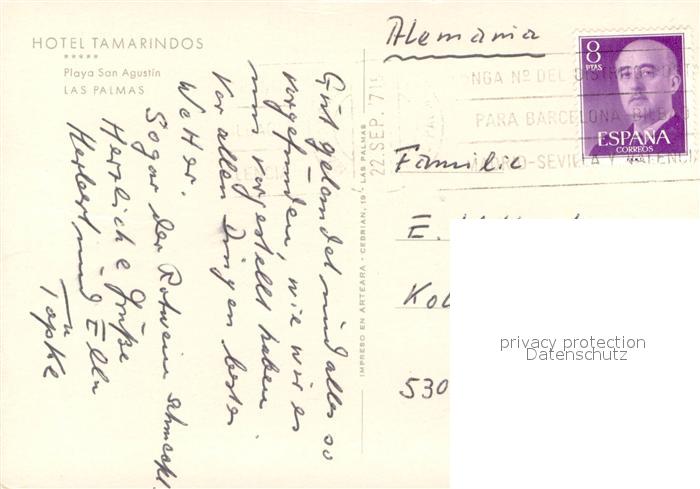 HOTEL TAMARINDOS
*****
Playa San Agustín
LAS PALMAS
Gut gelandet und alles so
vorgefunden, wie wir es
uns vorgestellt haben
Vor allen Dingen bestes
Wetter.
Sogar der Rotwein schmeckt.
Herzliche Grüße
Herbert und Ella
Töpke
IMPRESO EN ARTEARA - CEBRIAN, 19 - LAS PALMAS
22.SEP.71
PONGA Nº DEL DISTRITO
PARA BARCELONA-BILBAO
MADRID-SEVILLA Y VALENCIA
8
PTAS
ESPAÑA
CORREOS
Alemania
Familie
E.
Kol
530
privacy protection
Datenschutz